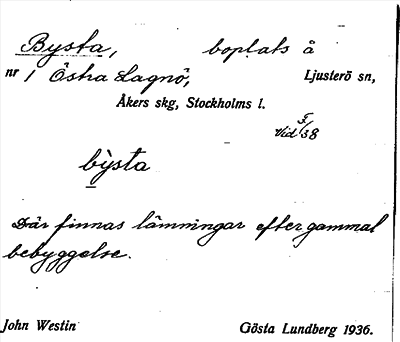 Bysta, boplats å
nr 1 Östra Lagnö, Ljusterö sn,
Åkers skg, Stockholms l.
Vid F/38
bỳsta
Där finnas lämningar efter gammal
bebyggelse.
John Westin Gösta Lundberg 1936.